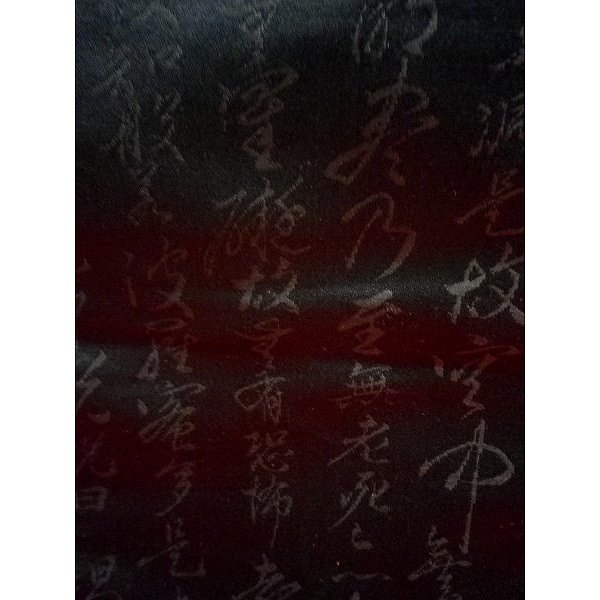 減是故空中無
明盡乃至無老死亦
無罣礙故無有恐怖遠
知般若波羅蜜多是
說咒曰揭